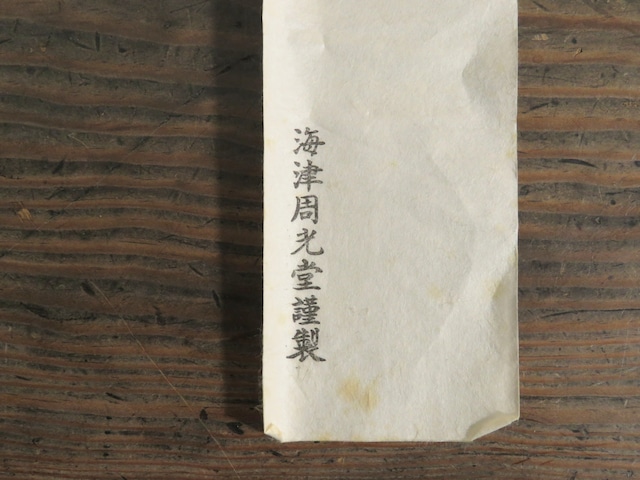 海津周光堂謹製